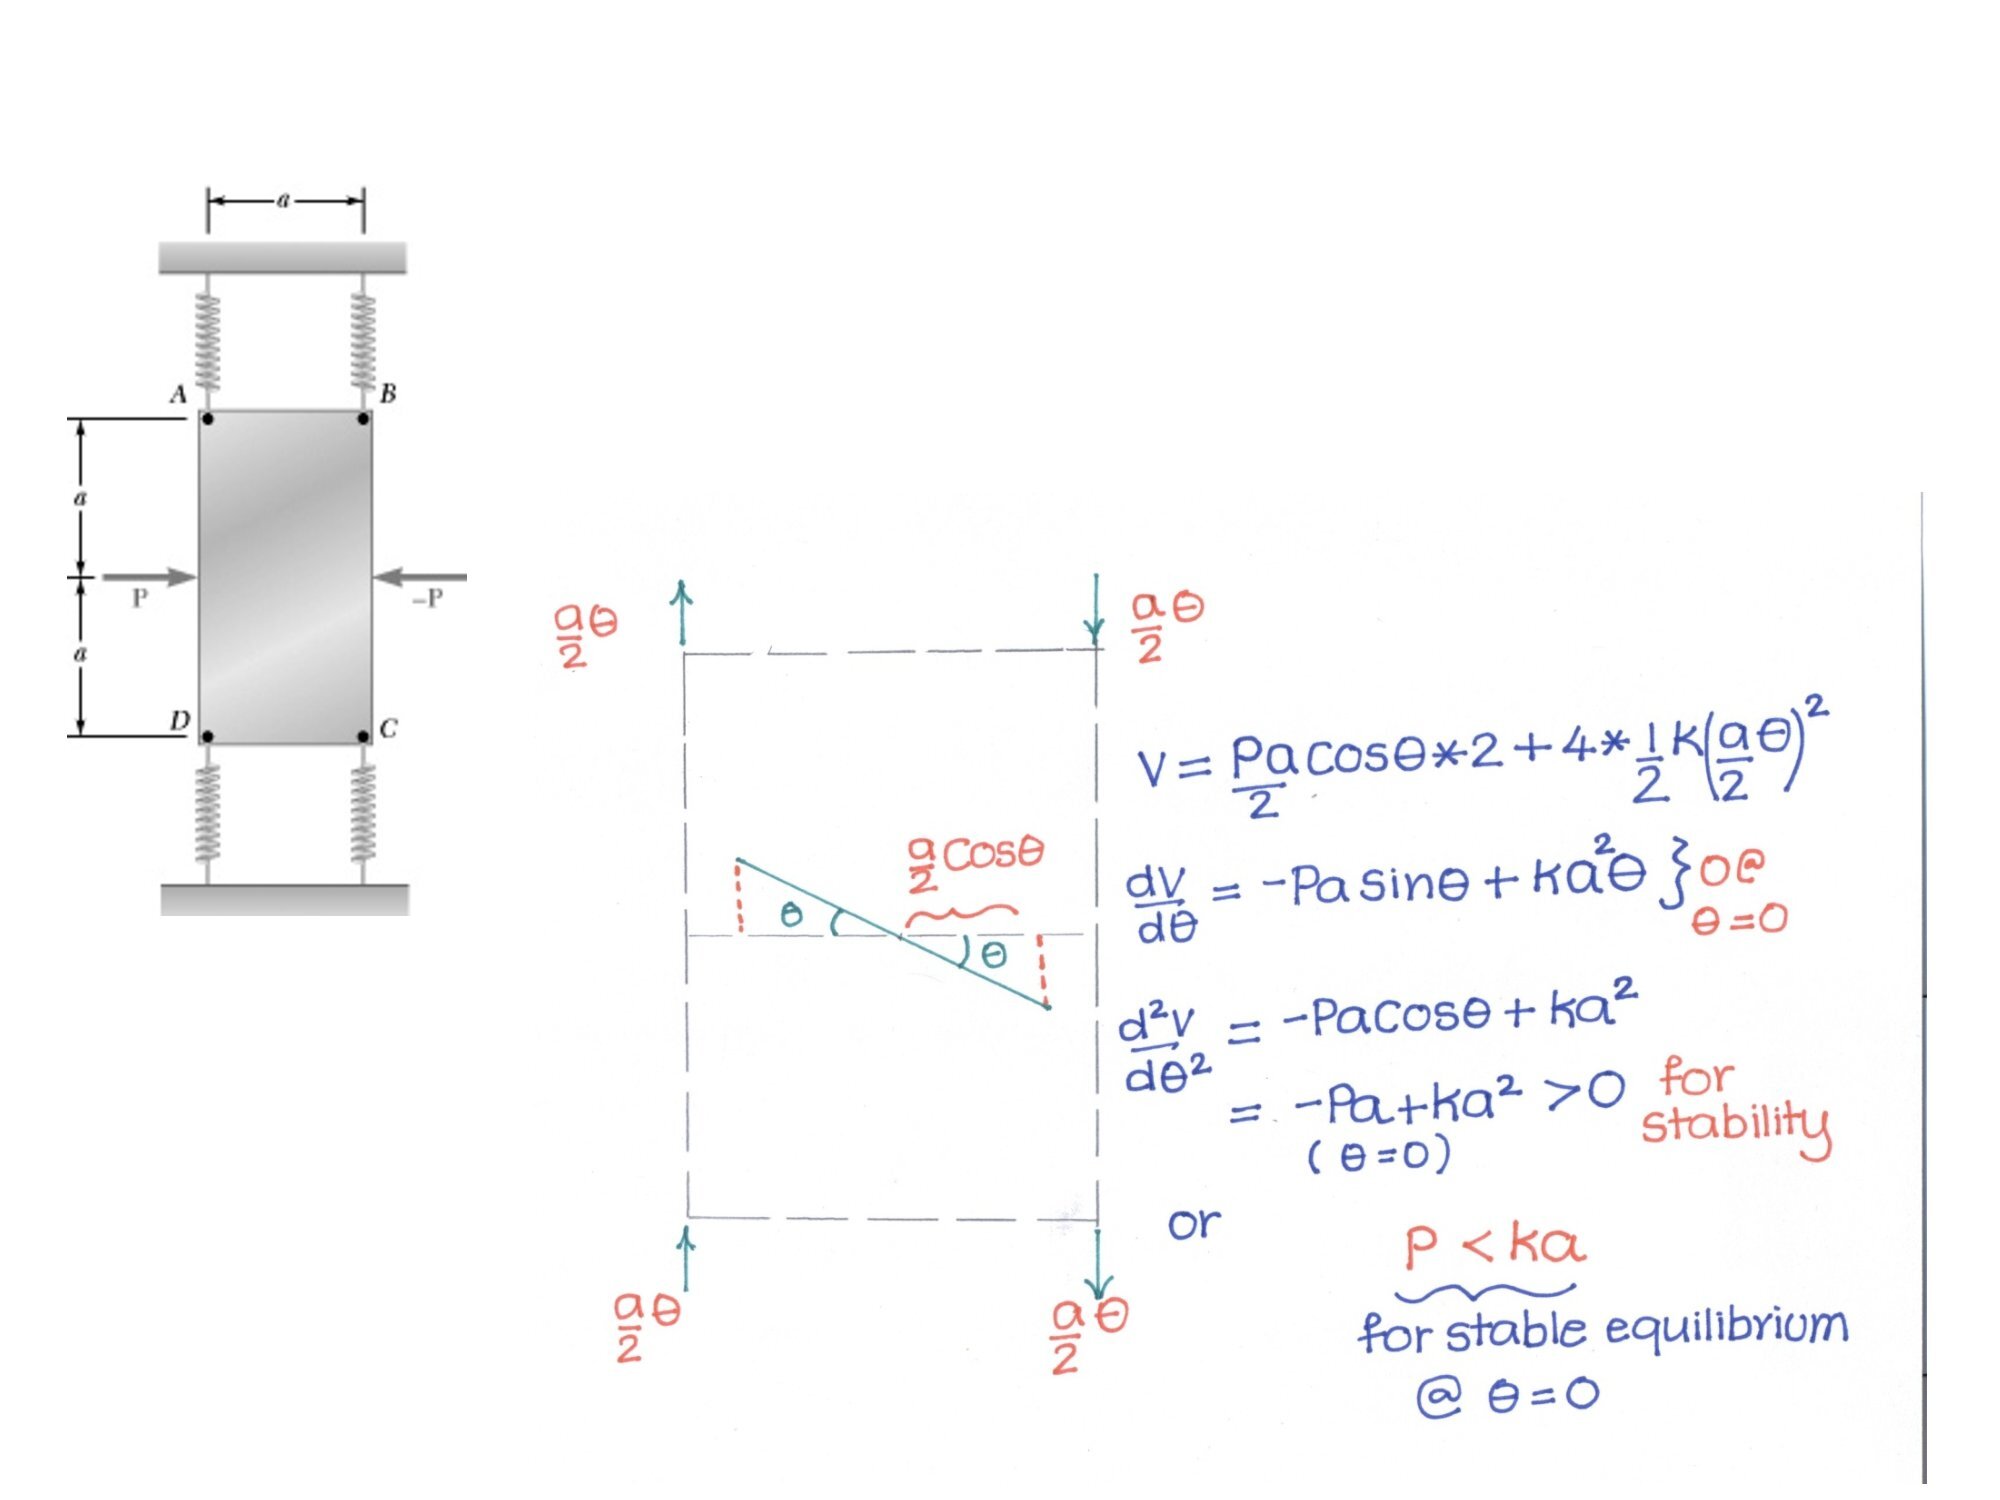 a
A
B
a
P
-P
a
D
C
a/2 θ
a/2 θ
a/2 cosθ
θ
θ
a/2 θ
a/2 θ
V = Pa/2 cosθ*2 + 4*1/2 K(a/2 θ)²
dV/dθ = -Pa sinθ + Ka²θ } 0 @
θ = 0
d²V/dθ² = -Pacosθ + ka²
= -Pa + ka² > 0 for
stability
(θ = 0)
or
P < ka
for stable equilibrium
@ θ = 0